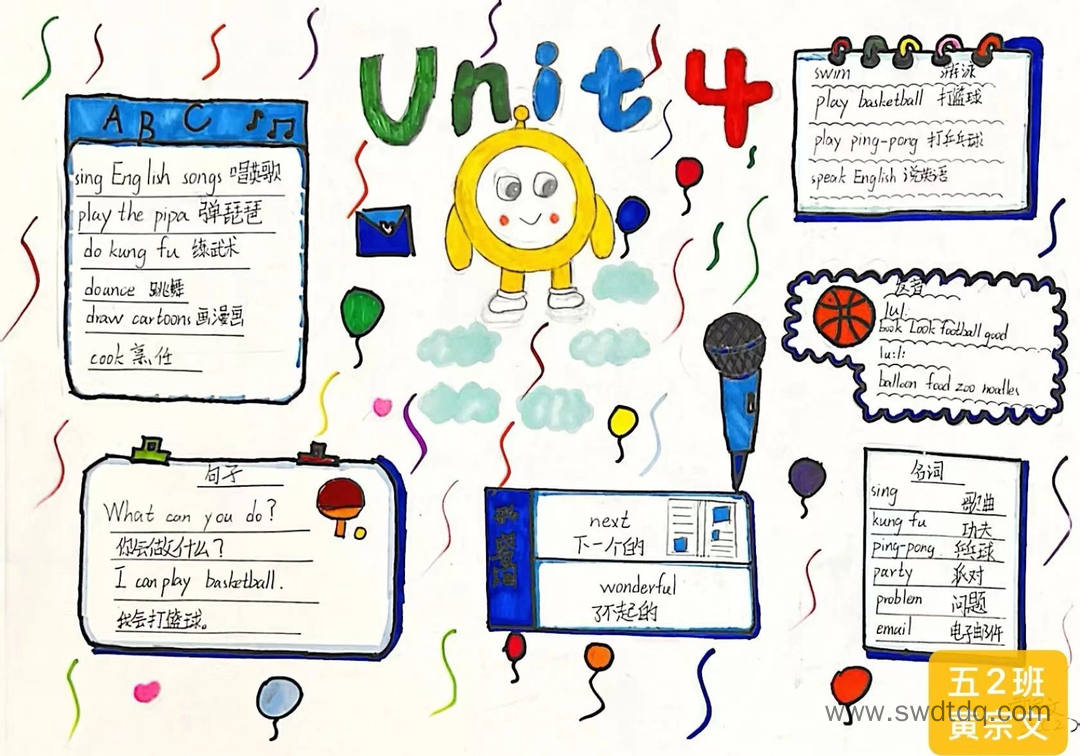 Unit 4
A B C
sing English songs 唱英歌
play the pipa 弹琵琶
do kung fu 练武术
dounce 跳舞
draw cartoons 画漫画
cook 烹饪
swim 游泳
play basketball 打篮球
play ping-pong 打乒乓球
speak English 说英语
发音
book Look football good
balloon food zoo noodles
句子
What can you do?
你会做什么?
I can play basketball.
我会打篮球。
next
下一个的
wonderful
了不起的
名词
sing 歌曲
kung fu 功夫
ping-pong 乒乓球
party 派对
problem 问题
email 电子邮件
五2班
黄宗文
www.swdtdq.com